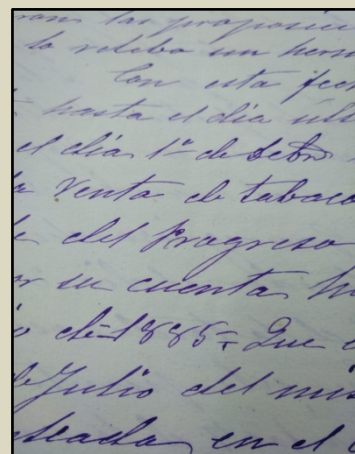 ran las proposicio
lo reciba un herm
Con esta fec
hasta el dia últ
el dia 1º de Setbre
la Venta de tabaco
del Progreso
or su cuenta h
o de 1885 = Que
de Julio del mis
en el